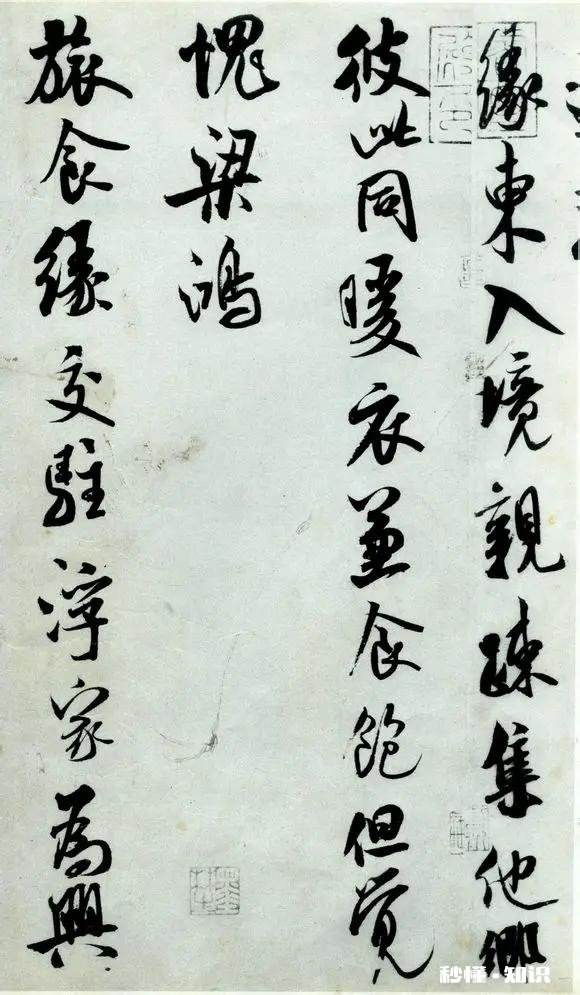 緣東入境親疎集他鄉
彼此同暖衣兼食飽但覺
愧梁鴻
旅食緣交駐浮家為興
秒懂·知识